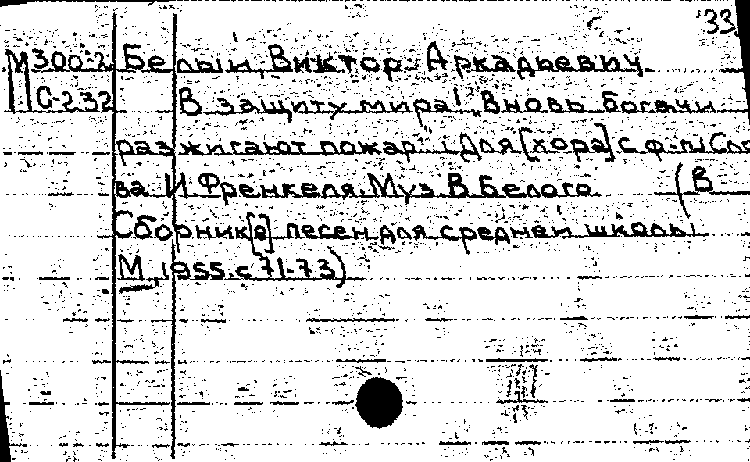 33
М300-2 Белый, Виктор Аркадьевич
С-232 В защиту мира! „Вновь богачи
разжигают пожар." [Для [хора] с ф-п/ Сло
ва И. Френкеля. Муз. В. Белого (В
Сборник[е] песен для средней школы
М, 1955. с 71-73)